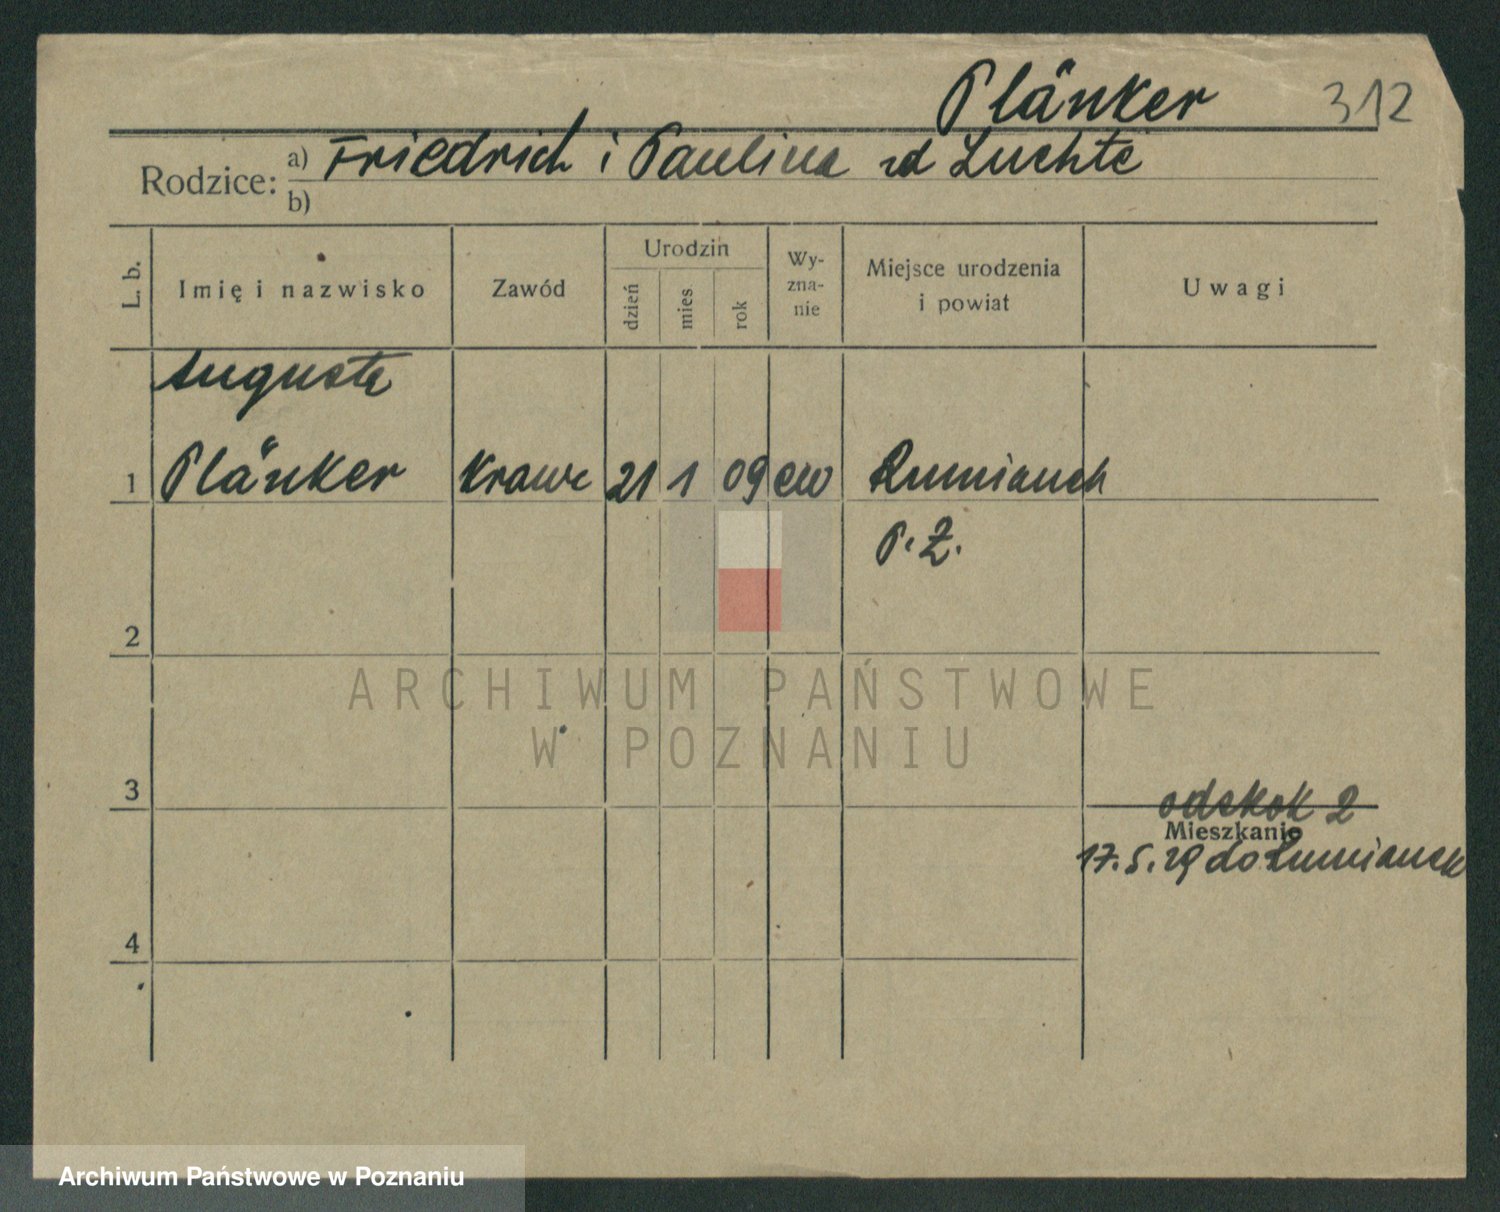 Plänker 312
Rodzice: a) Friedrich i Paulina zd Luchte
b)
L. b.
Imię i nazwisko
Zawód
Urodzin
dzień
mies
rok
Wy-
zna-
nie
Miejsce urodzenia
i powiat
Uwagi
Auguste
1 Plänker Krawc 21 1 09 ew
P. Ż.
2
ARCHIWUM PAŃSTWOWE
W POZNANIU
3
Mieszkanie
17.5.29 do
4
Archiwum Państwowe w Poznaniu